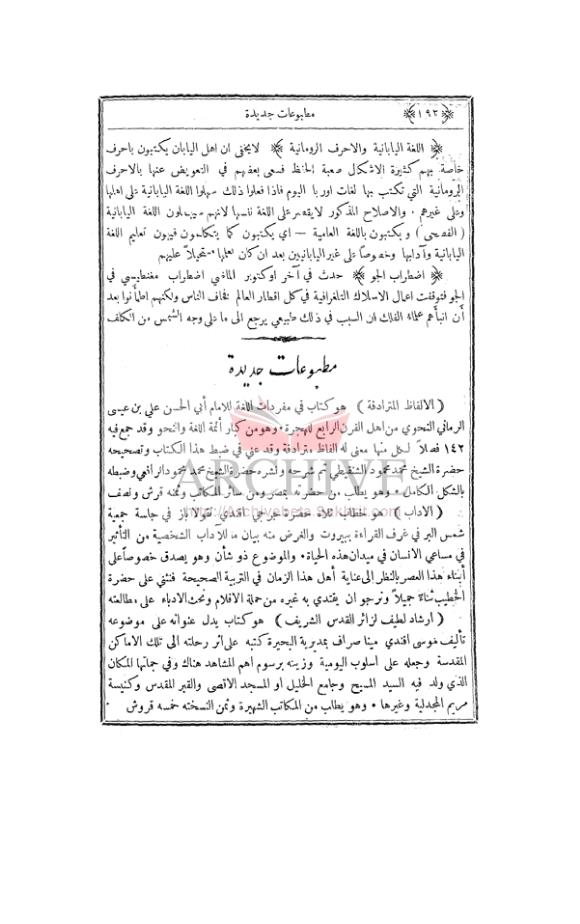 ﴿ ١٩٢ ﴾ مطبوعات جديدة
﴿ اللغة اليابانية والاحرف الرومانية ﴾ لايخفى ان اهل اليابان يكتبون باحرف
خاصة بهم كثيرة الاشكال صعبة الحفظ فسعى بعضهم في التعويض عنها بالاحرف
الرومانية التي تكتب بها لغات اوربا اليوم فاذا فعلوا ذلك سهلوا اللغة اليابانية على اهلها
وعلى غيرهم . والاصلاح المذكور لايقتصر على اللغة نفسها لانهم سيهملون اللغة اليابانية
( الفصحى ) ويكتبون باللغة العامية — اي يكتبون كما يتكلمون فيهون تعليم اللغة
اليابانية وآدابها وخصوصاً على غير اليابانيين بعد ان كان تعلمها مستحيلاً عليهم
﴿ اضطراب الجو ﴾ حدث في آخر اوكتوبر الماضي اضطراب مغنطيسي في
الجو فتوقفت اعمال الاسلاك التلغرافية في كل اقطار العالم فخاف الناس ولكنهم اطمأنوا بعد
أن انبأهم علماء الفلك ان السبب في ذلك طبيعي يرجع الى ما على وجه الشمس من الكلف
مطبوعات جديدة
( الالفاظ المترادفة ) هو كتاب في مفردات اللغة للامام أبي الحسن علي بن عيسى
الرماني النحوي من اهل القرن الرابع للهجرة . وهو من كبار أئمة اللغة والنحو وقد جمع فيه
١٤٢ فصلاً لكل منها معنى له الفاظ مترادفة وقد عني في ضبط هذا الكتاب وتصحيحه
حضرة الشيخ محمد محمود الشنقيطي ثم شرحه ونشره حضرة الشيخ محمد محمود الرافعي وضبطه
بالشكل الكامل . وهو يطلب من حضرته بمصر ومن سائر المكاتب وثمنه قرش ونصف
( الاداب ) هو خطاب تلاه حضرة جرجي افندي نقولا باز في جلسة جمعية
شمس البر في غرف القراءة ببيروت والغرض منه بيان ما للآداب الشخصية من التأثير
في مساعي الانسان في ميدان هذه الحياة . والموضوع ذو شأن وهو يصدق خصوصاً على
أبناء هذا العصر بالنظر الى عناية أهل هذا الزمان في التربية الصحيحة فنثني على حضرة
الخطيب ثناءً جميلاً ونرجو ان يقتدي به غيره من حملة الاقلام ونحث الادباء على مطالعته
( ارشاد لطيف لزائر القدس الشريف ) هو كتاب يدل عنوانه على موضوعه
تأليف موسى افندي مينا صراف بمديرية البحيرة كتبه على اثر رحلته الى تلك الاماكن
المقدسة وجعله على أسلوب اليومية وزينه برسوم اهم المشاهد هناك وفي جملتها المكان
الذي ولد فيه السيد المسيح وجامع الخليل او المسجد الاقصى والقبر المقدس وكنيسة
مريم المجدلية وغيرها . وهو يطلب من المكاتب الشهيرة وثمن النسخة خمسة قروش .
ARCHIVE
http://Archivebeta.Sakhrit.com